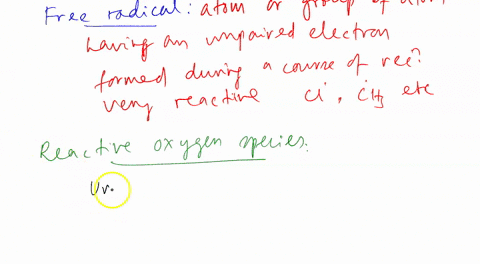 Free radical: atom or group of atom
having an unpaired electron
formed during a course of rec?
very reactive Cl . CH3 etc
Reactive oxygen species:
Ur.